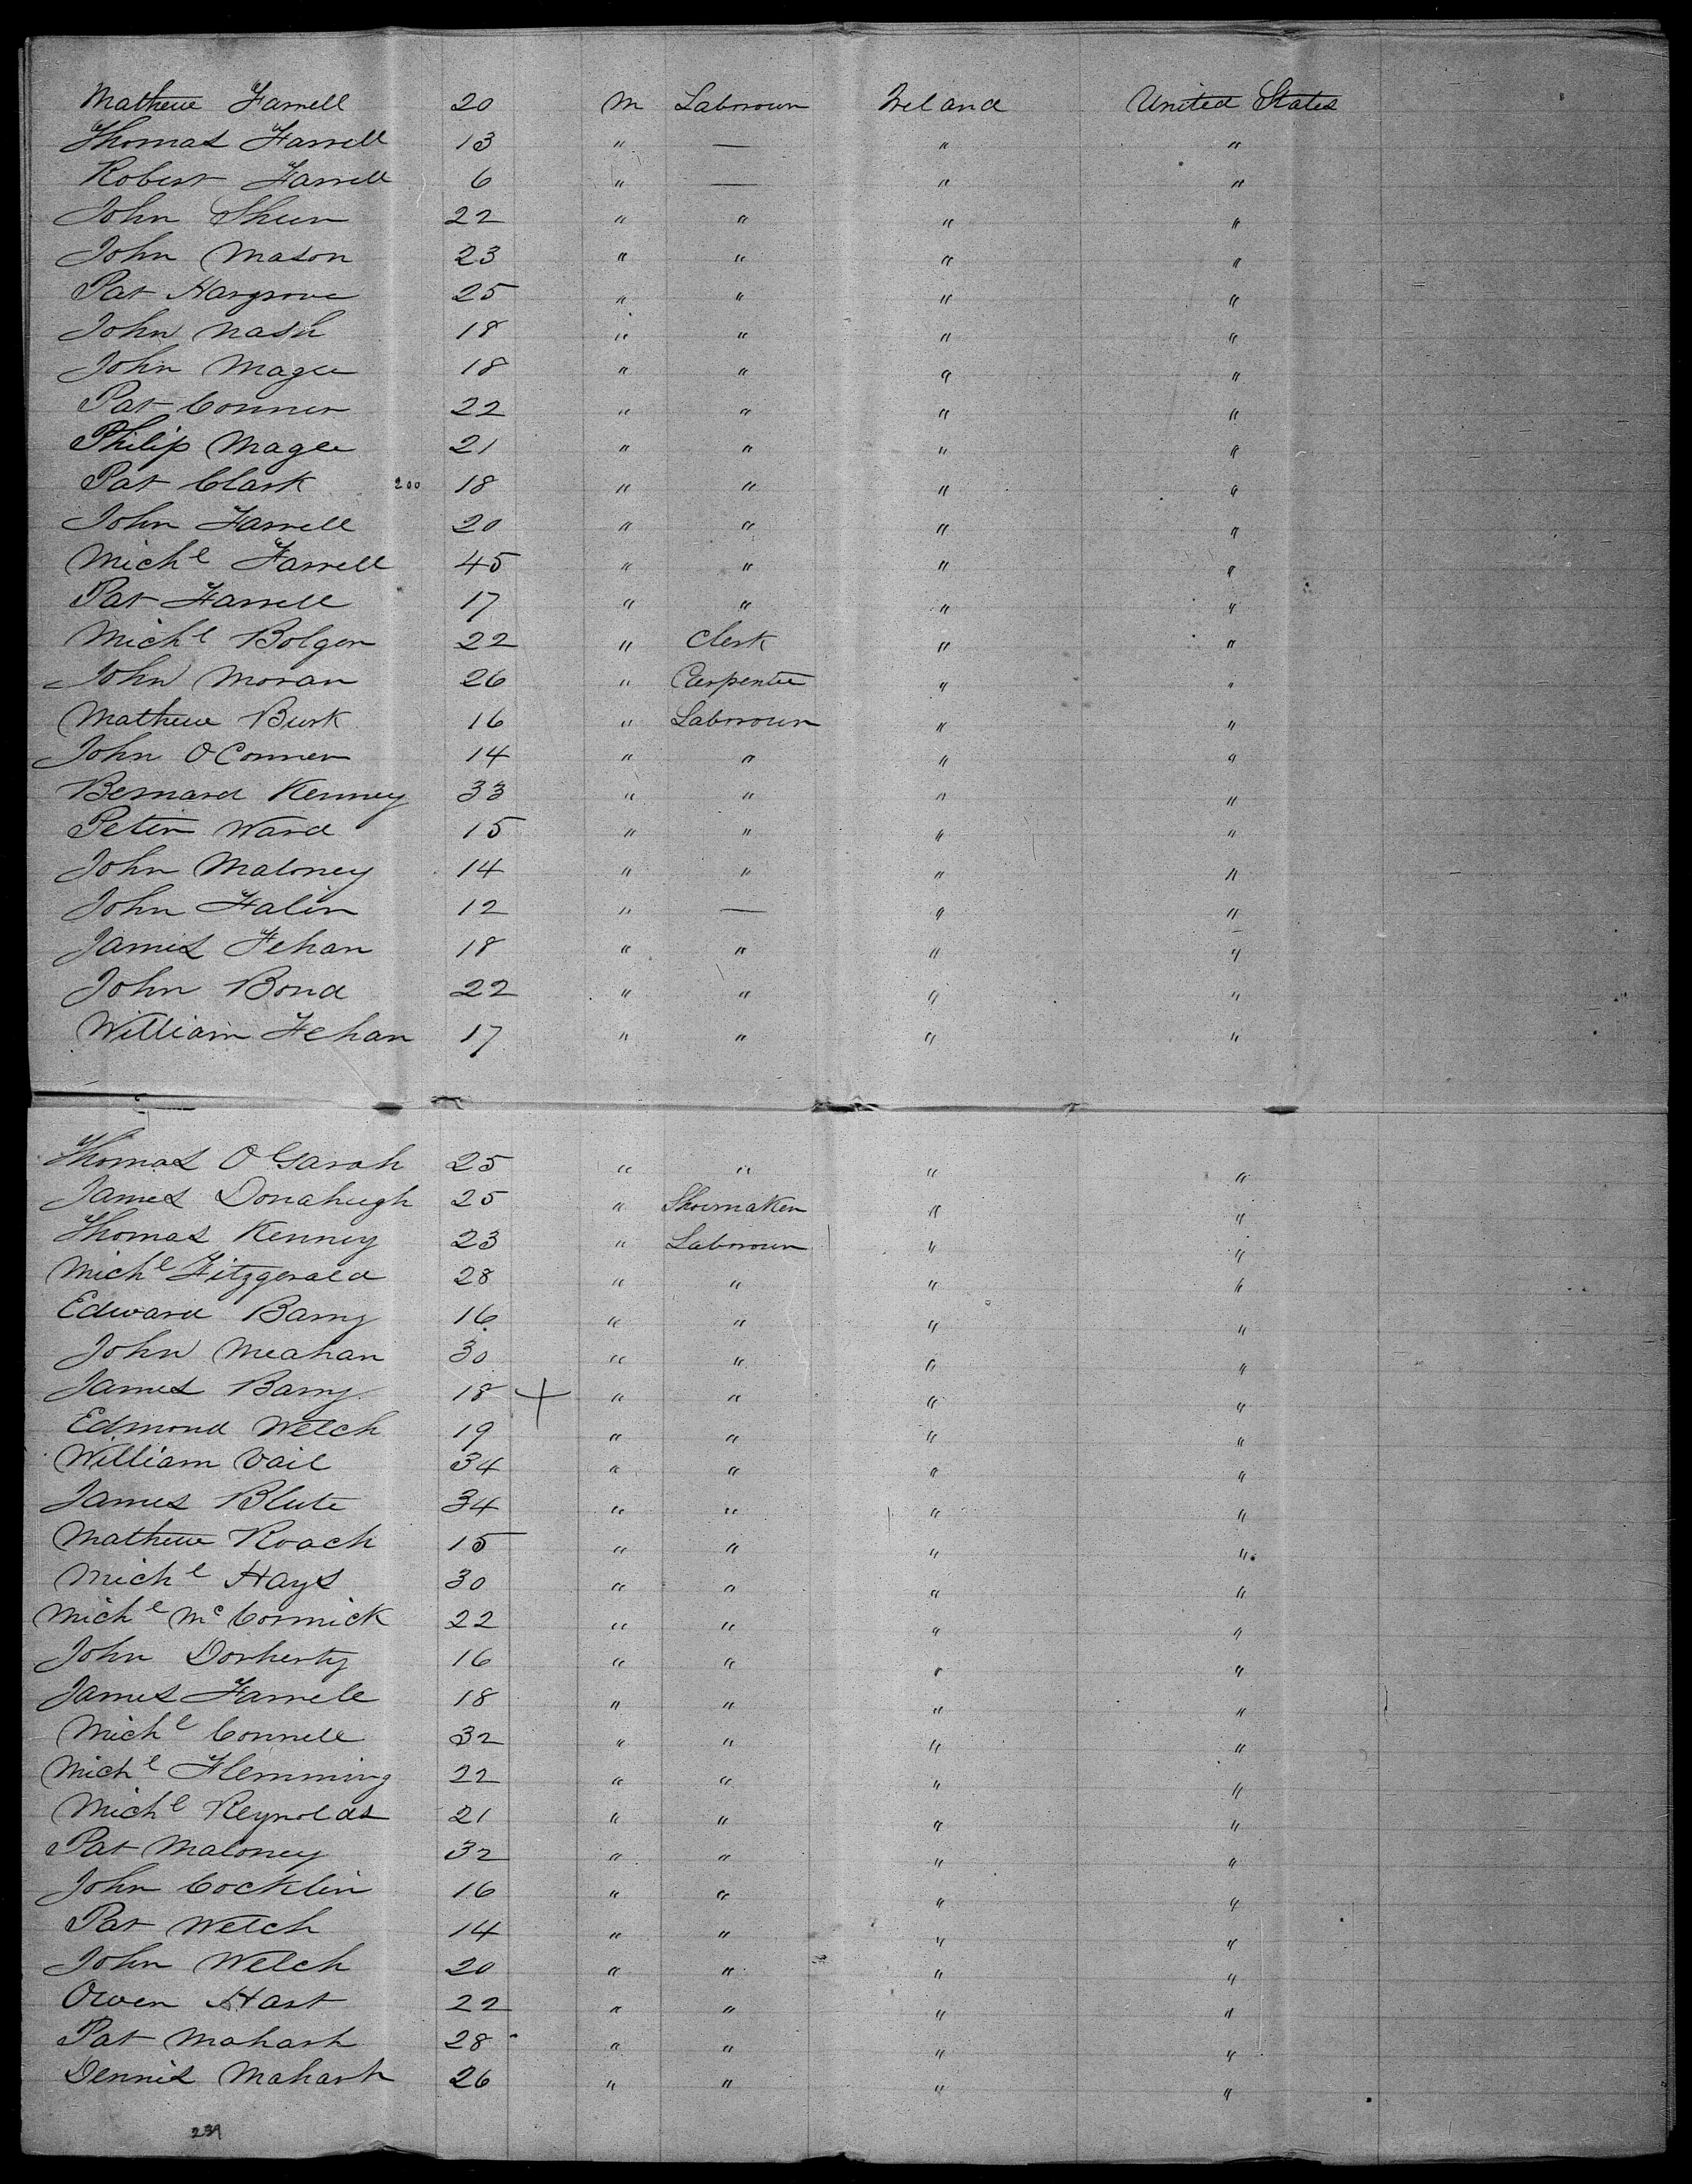 Mathew Farrell 20 M Labrourr Ireland United States
Thomas Farrell 13 " — " "
Robert Farrell 6 " — " "
John Sheer 22 " " " "
John Mason 23 " " " "
Pat Hargrove 25 " " " "
John Nash 18 " " " "
John Magee 18 " " " "
Pat Conner 22 " " " "
Philip Magee 21 " " " "
Pat Clark 200 18 " " " "
John Farrell 20 " " " "
Michl Farrell 45 " " " "
Pat Farrell 17 " " " "
Michl Bolger 22 " Clerk " "
John Moran 26 " Carpenter " "
Mathew Burk 16 " Labrourr " "
John O Conner 14 " " " "
Bernard Kenney 33 " " " "
Peter Ward 15 " " " "
John Maloney 14 " " " "
John Falin 12 " — " "
James Fehan 18 " " " "
John Bond 22 " " " "
William Fehan 17 " " " "
Thomas O Garah 25 " " " "
James Donahugh 25 " Shoemaker " "
Thomas Kenney 23 " Labrourr " "
Michl Fitzgerald 28 " " " "
Edward Barry 16 " " " "
John Meahan 30 " " " "
James Barry 18 + " " " "
Edmond Welch 19 " " " "
William Vail 34 " " " "
James Blute 34 " " " "
Mathew Roach 15 " " " "
Michl Hays 30 " " " "
Michl Mc Cormick 22 " " " "
John Dorherty 16 " " " "
James Farrele 18 " " " "
Michl Connell 32 " " " "
Michl Flemming 22 " " " "
Michl Reynolds 21 " " " "
Pat Maloney 32 " " " "
John Cocklin 16 " " " "
Pat Welch 14 " " " "
John Welch 20 " " " "
Owen Hart 22 " " " "
Pat Maharh 28 " " " "
Dennis Maharh 26 " " " "
239